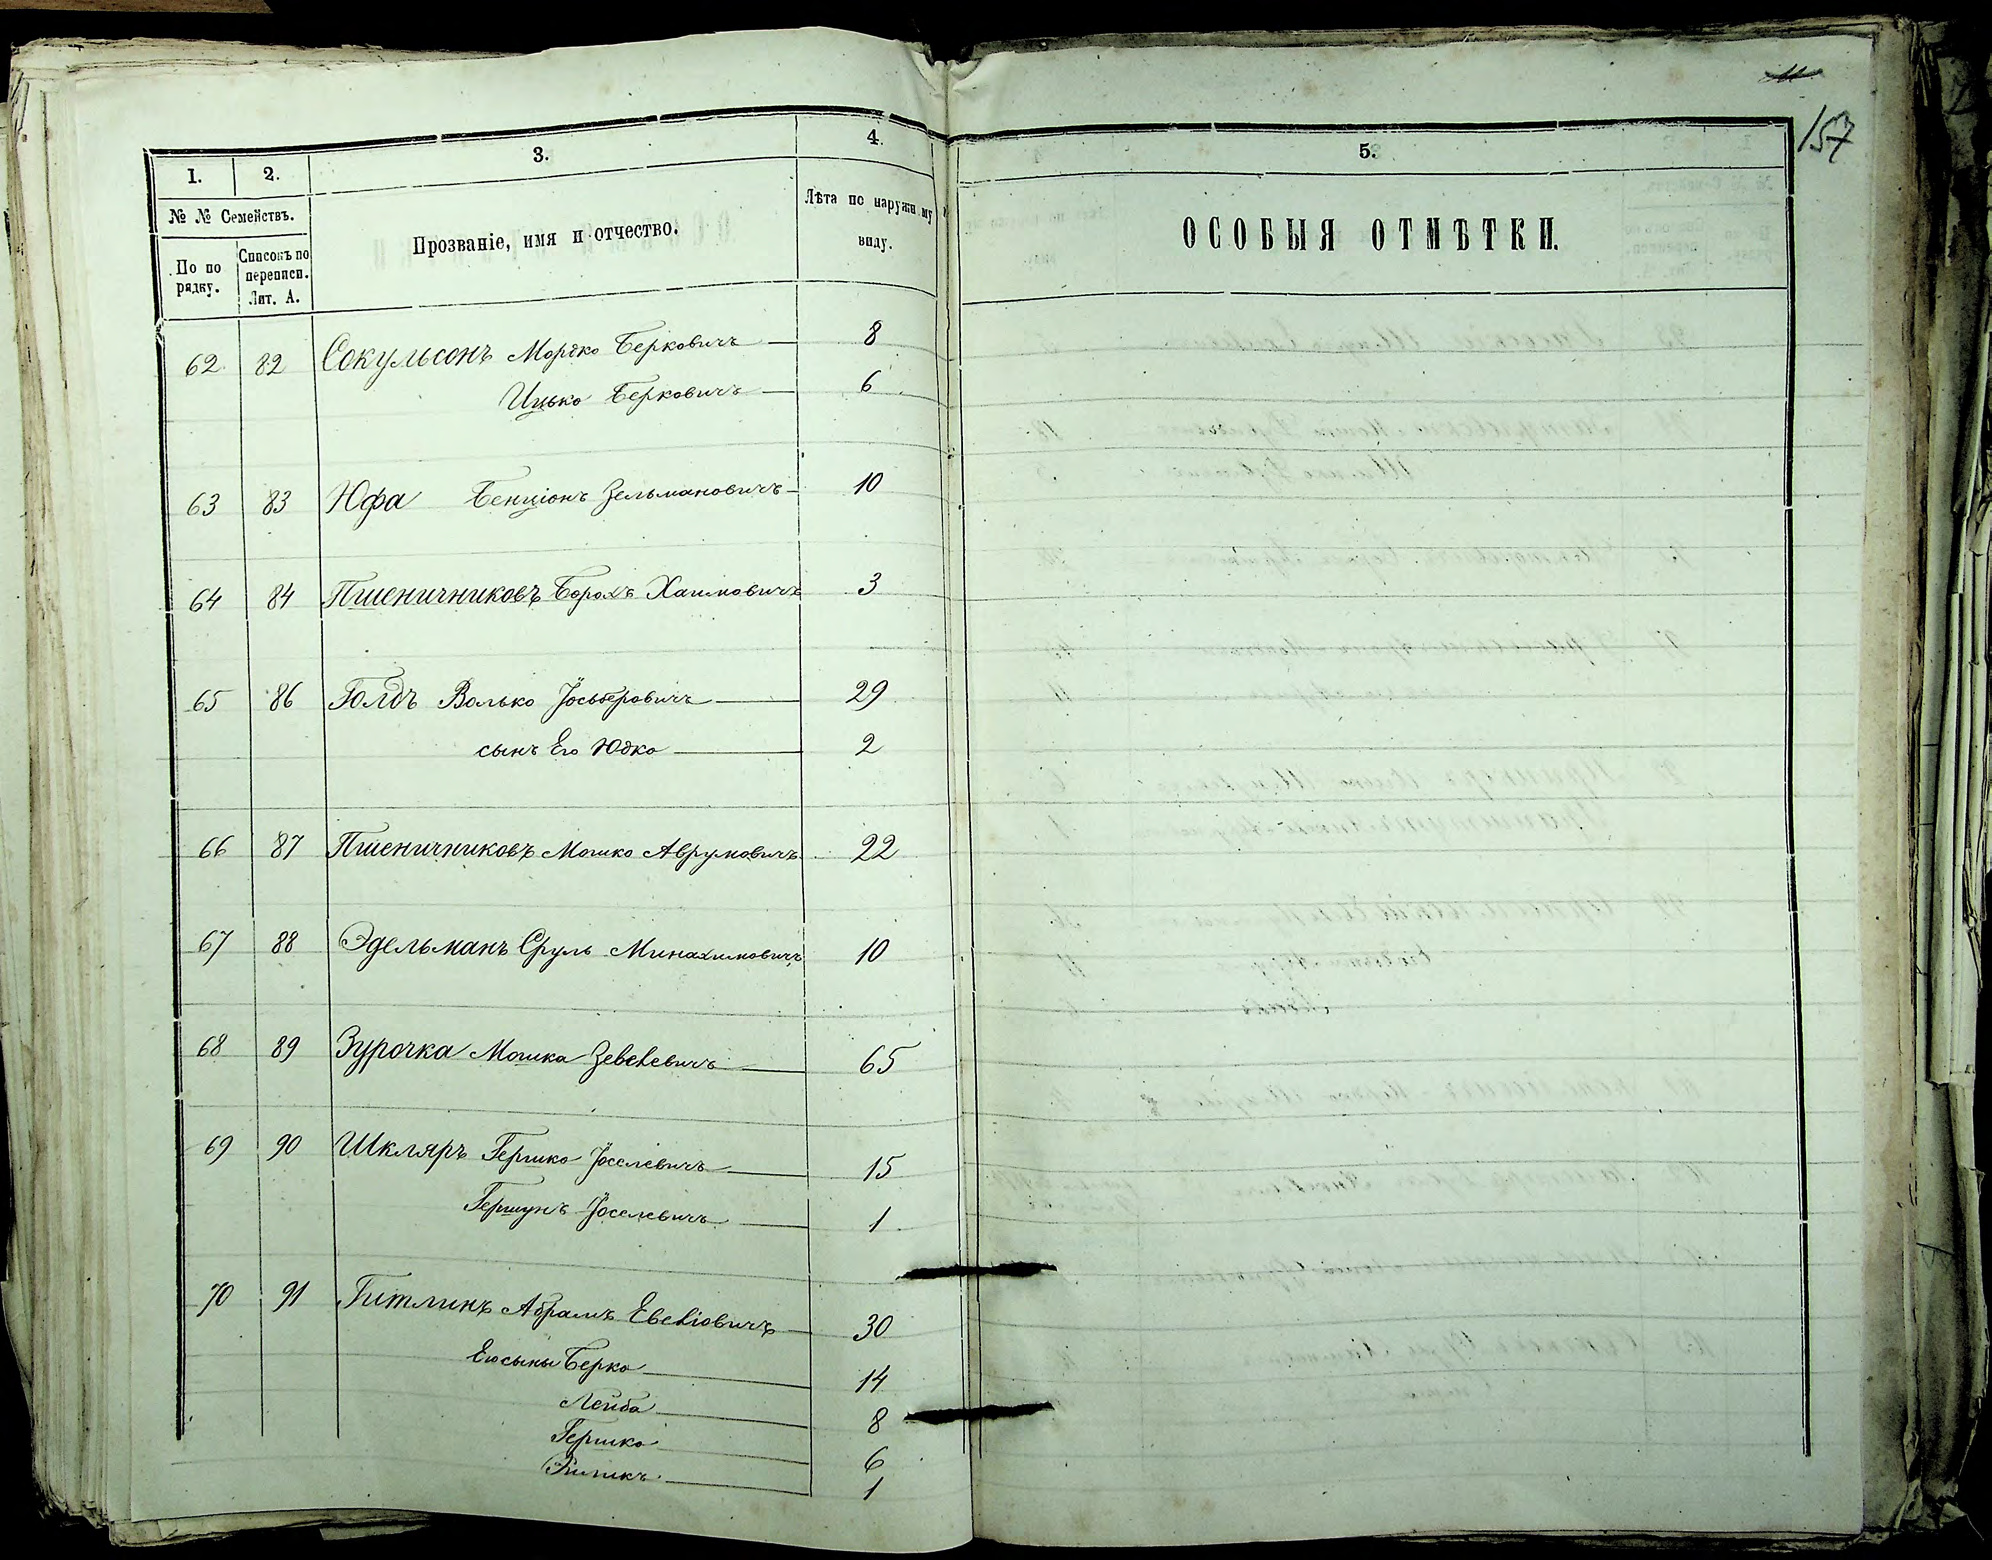 1. 2. 3. 4.
№ № Семействъ. Прозваніе, имя и отчество. Лѣта по наружн му виду.
По по рядку. Списокъ по переписи. Лит. А.
62 82 Сокульсонъ Мордко Берковичъ 8
Ицько Берковичъ 6
63 83 Юфа Бенціонъ Зельмановичъ 10
64 84 Пшеничниковъ Борохъ Хаимовичъ 3
65 86 Голдъ Волько Іосьберовичъ 29
сынъ Его Юдко 2
66 87 Пшеничниковъ Мошко Аврумовичъ 22
67 88 Эдельманъ Сруль Минахимовичъ 10
68 89 Зурочка Мошка 65
69 90 Шкляръ Гершко Іоселевичъ 15
Гершунъ Іоселевичъ 1
70 91 Гитлинъ Абрамъ 30
Его сыны Берко 14
Лейба 8
Гершко 6
1
11
157
5.
ОСОБЫЯ ОТМѢТКИ.